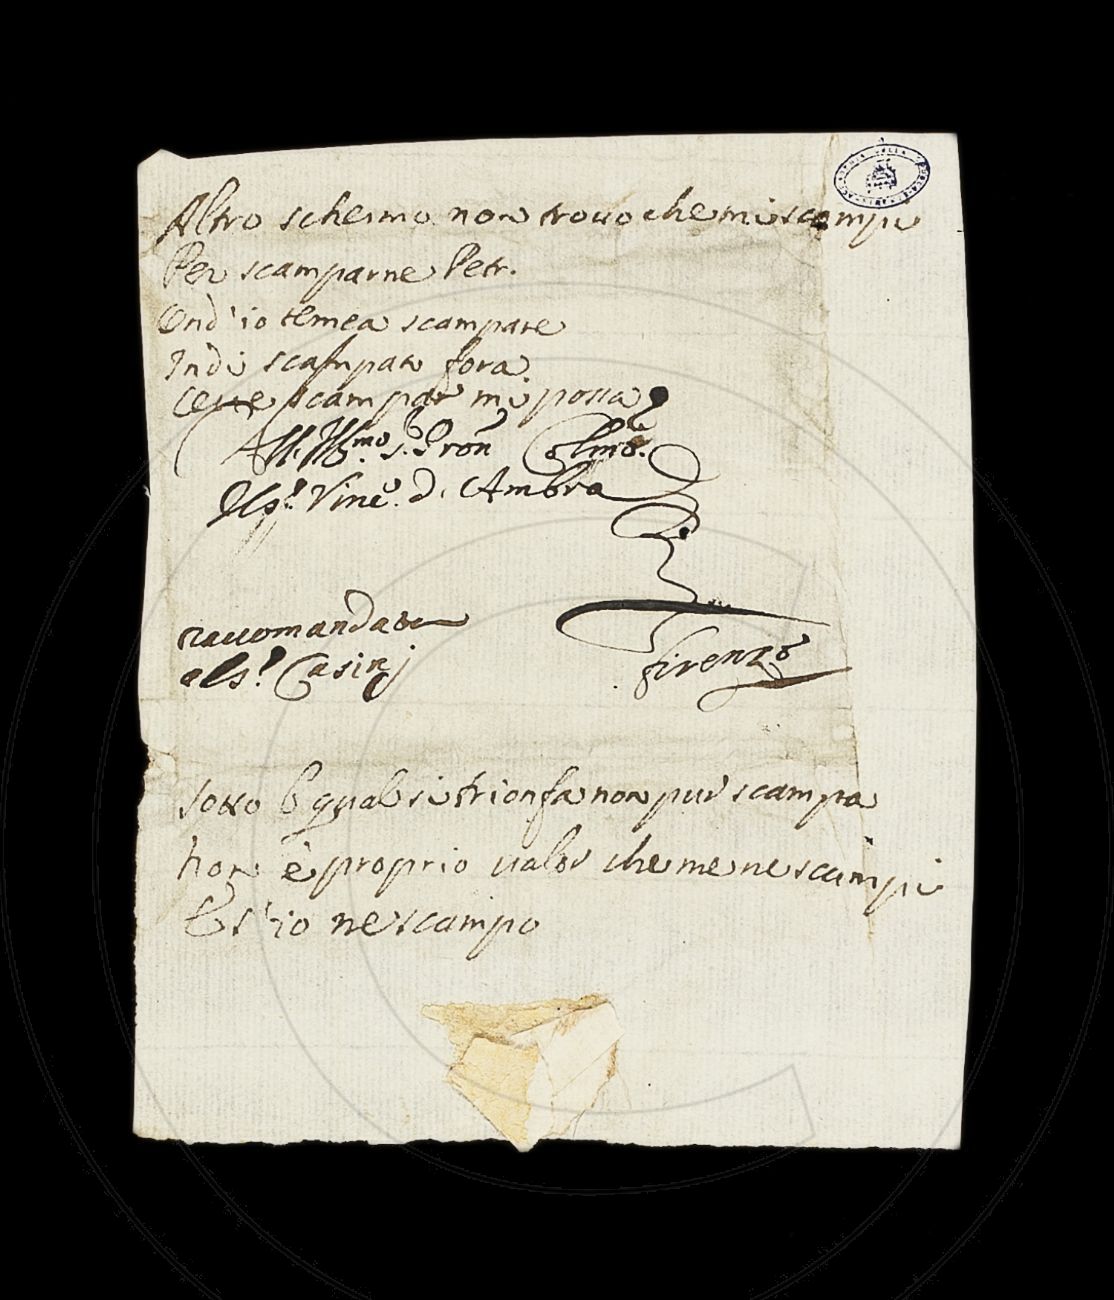 Altro schermo non trouo che mi scampi
Per scamparne Petr.
Ond'io temea scampare
Indi scampato fora
Ce scampar mi possa
All Ill.mo S. Pron Colmo.
Il S.r Vinc.o d'Ambra
raccomandata
al S.r Casinj
Firenze
sotto l qual si trionfa non pur scampa
non è proprio ualor che me ne scampi
E s'io ne scampo